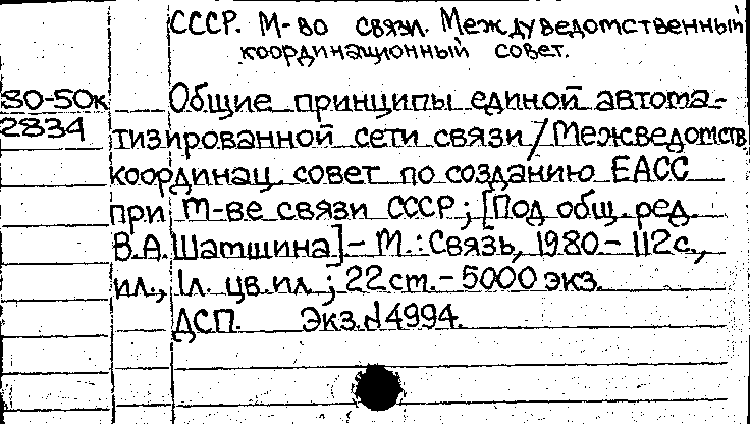 СССР. М-во связи. Междуведомственный
координационный совет.
80-50к
2834
Общие принципы единой автома-
тизированной сети связи / Межведомств.
координац. совет по созданию ЕАСС
при М-ве связи СССР; [Под общ. ред.
В.А. Шамшина] – М.: Связь, 1980. – 112 с.,
ил., 1 л. цв. ил.; 22 см. – 5000 экз.
ДСП. Экз. №4994.